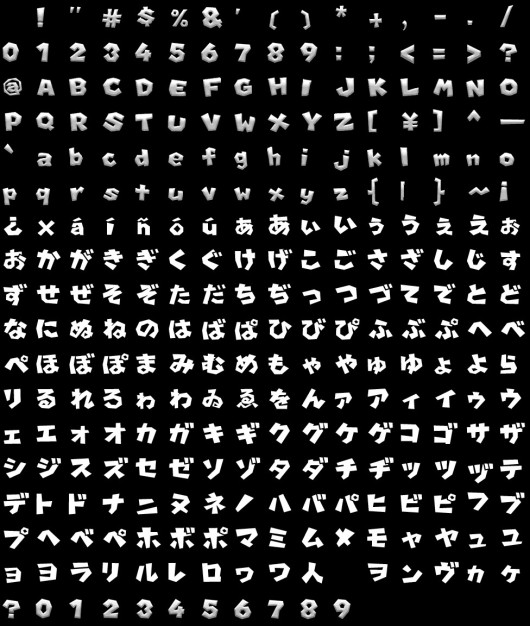 ! " # $ % & ' ( ) * + , - . /
0 1 2 3 4 5 6 7 8 9 : ; < = > ?
@ A B C D E F G H I J K L M N O
P Q R S T U V W X Y Z [ ¥ ] ^ _
` a b c d e f g h i j k l m n o
p q r s t u v w x y z { | } ~ ¡
¿ × á í ñ ó ú ぁ あ ぃ い ぅ う ぇ え ぉ
お か が き ぎ く ぐ け げ こ ご さ ざ し じ す
ず せ ぜ そ ぞ た だ ち ぢ っ つ づ て で と ど
な に ぬ ね の は ば ぱ ひ び ぴ ふ ぶ ぷ へ べ
ぺ ほ ぼ ぽ ま み む め も ゃ や ゅ ゆ ょ よ ら
り る れ ろ ゎ わ ゐ ゑ を ん ァ ア ィ イ ゥ ウ
ェ エ ォ オ カ ガ キ ギ ク グ ケ ゲ コ ゴ サ ザ
シ ジ ス ズ セ ゼ ソ ゾ タ ダ チ ヂ ッ ツ ヅ テ
デ ト ド ナ ニ ヌ ネ ノ ハ バ パ ヒ ビ ピ フ ブ
プ ヘ ベ ペ ホ ボ ポ マ ミ ム メ モ ャ ヤ ュ ユ
ョ ヨ ラ リ ル レ ロ ヮ ワ 人 ヲ ン ヴ ヵ ヶ
? 0 1 2 3 4 5 6 7 8 9